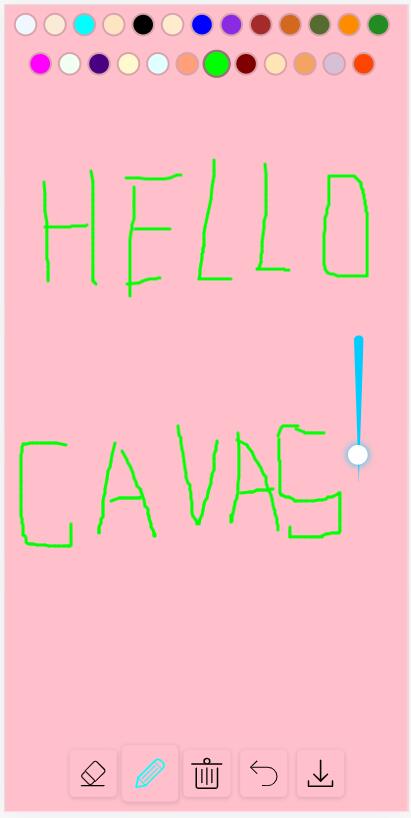 HELLO
CAVAS